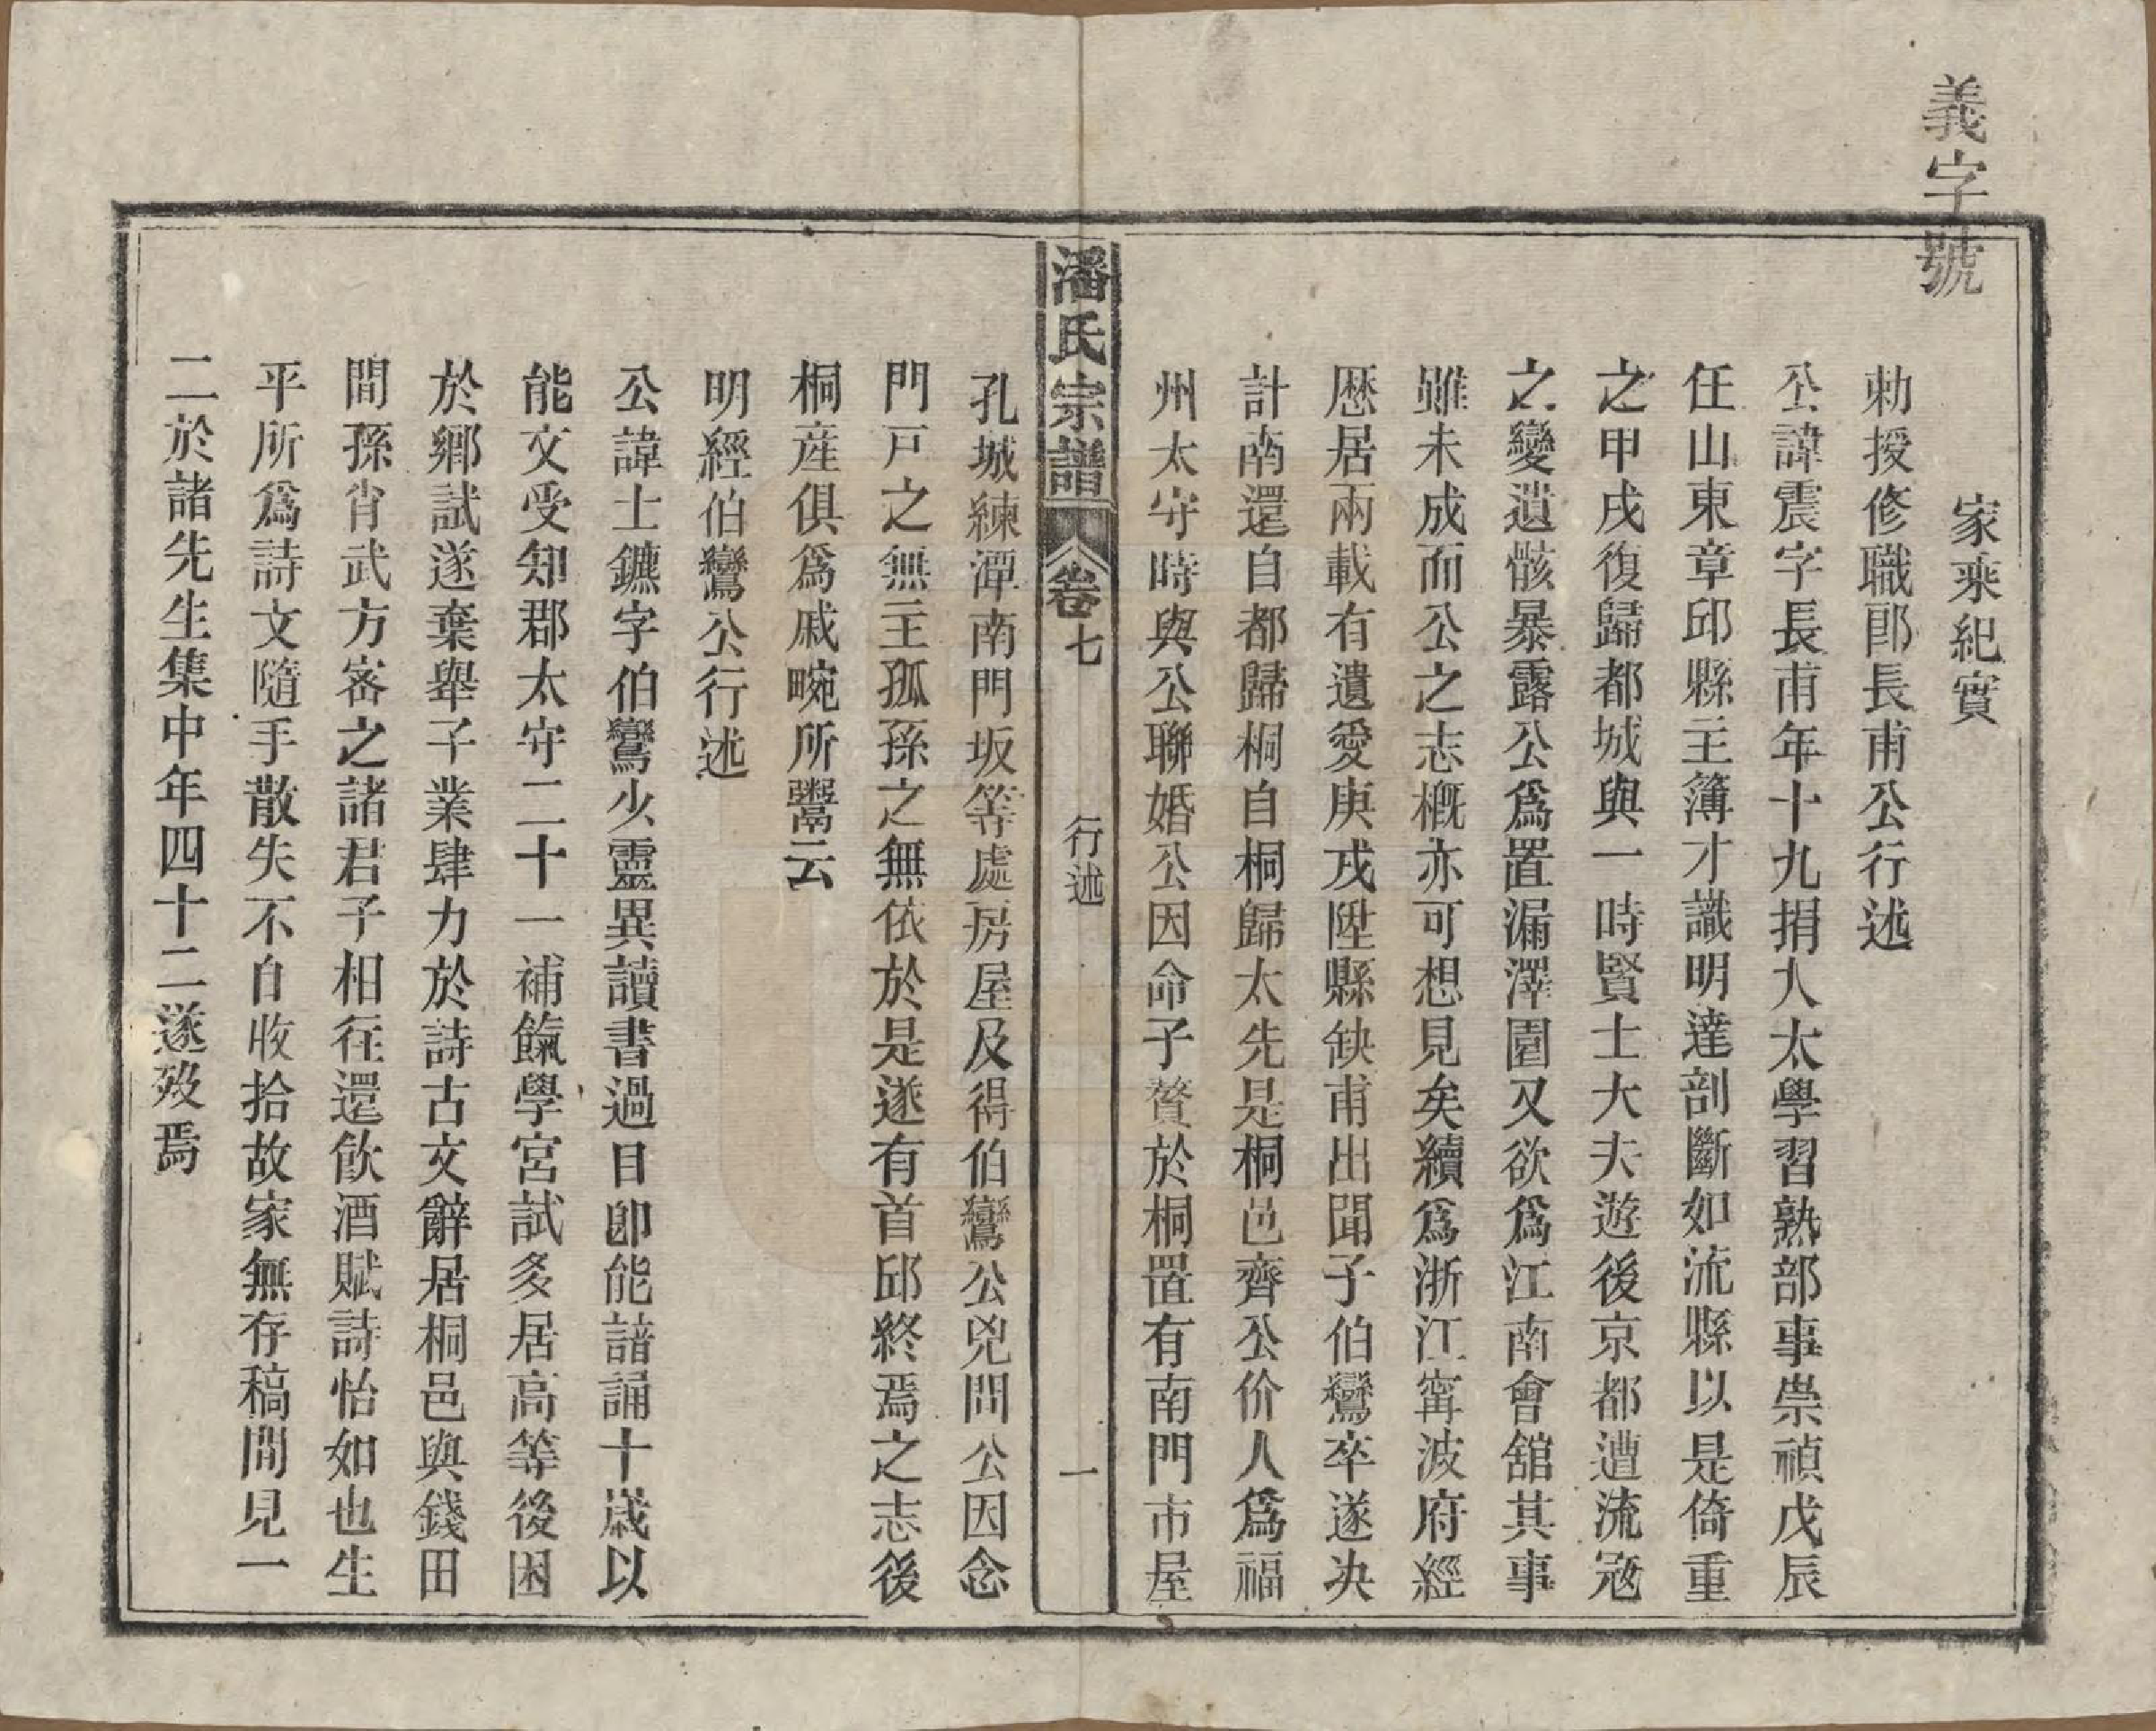 義字號
家乘紀實
勅授修職郎長甫公行述
公諱震字長甫年十九捐入太學習熟部事崇禎戊辰
任山東章邱縣主簿才識明達剖斷如流縣以是倚重
之甲戌復歸都城與一時賢士大夫遊後京都遭流冦
之變遺骸暴露公爲置漏澤園又欲爲江南會舘其事
雖未成而公之志槪亦可想見矣續爲浙江寗波府經
歷居兩載有遺愛庚戌陞縣缺甫出聞子伯鸞卒遂决
計南還自都歸桐自桐歸太先是桐邑齊公价人爲福
州太守時與公聯婚公因命子贅於桐置有南門市屋
潘氏宗譜
卷七
行述
一
孔城練潭南門坂等處房屋及得伯鸞公兇問公因念
門戸之無主孤孫之無依於是遂有首邱終焉之志後
桐産俱爲戚畹所鬻云
明經伯鸞公行述
公諱士鑣字伯鸞少靈異讀書過目卽能諳誦十歲以
能文受知郡太守二十一補餼學宮試多居高等後困
於鄉試遂棄舉子業肆力於詩古文辭居桐邑與錢田
間孫肖武方密之諸君子相往還飮酒賦詩怡如也生
平所爲詩文隨手散失不自收拾故家無存稿間見一
二於諸先生集中年四十二遂歿焉